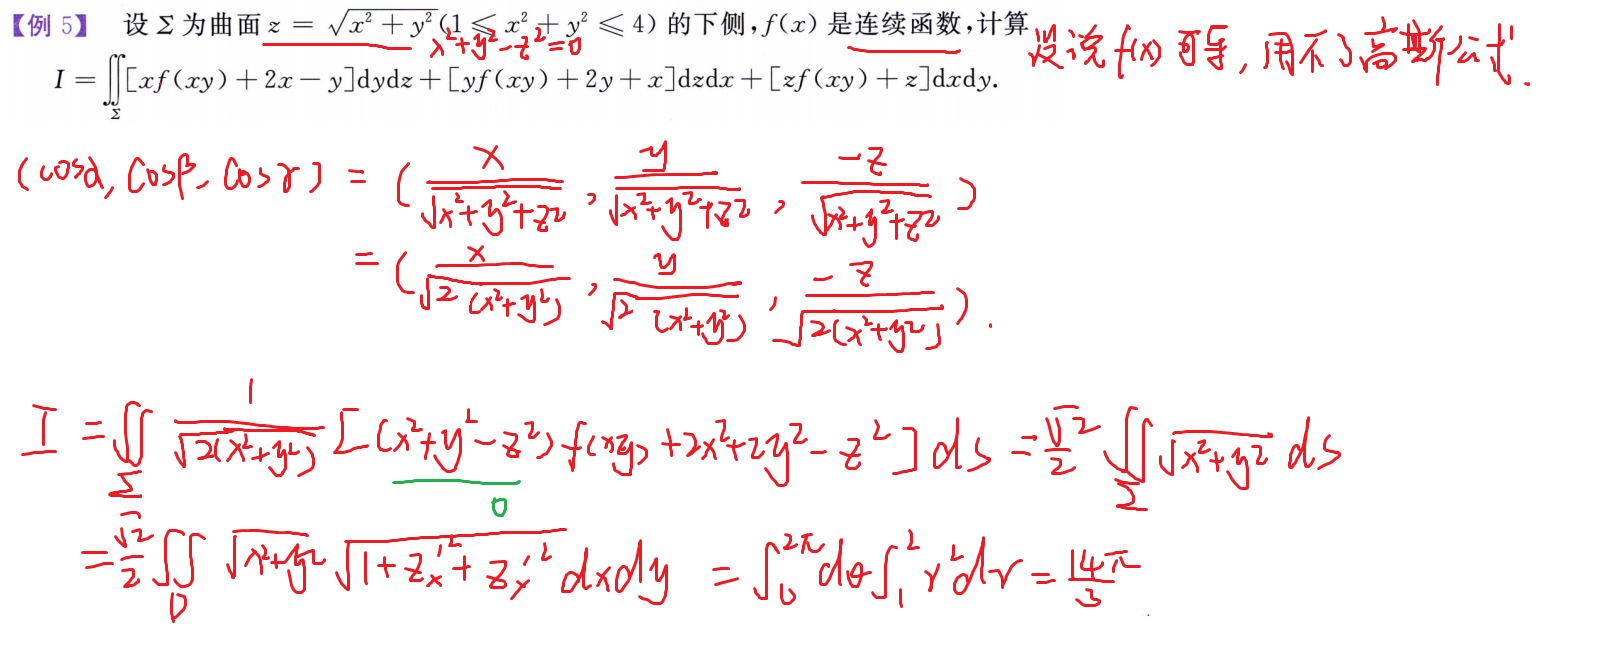 【例 5】 设 Σ 为曲面 z = √(x² + y²) (1 ≤ x² + y² ≤ 4) 的下侧, f(x) 是连续函数, 计算
x²+y²-z²=0
没说 f(x) 可导, 用不了高斯公式.
I = ∬_Σ [xf(xy) + 2x − y]dydz + [yf(xy) + 2y + x]dzdx + [zf(xy) + z]dxdy.
(cosα, cosβ, cosγ) = ( x/√(x²+y²+z²), y/√(x²+y²+z²), -z/√(x²+y²+z²) )
= ( x/√(2(x²+y²)), y/√(2(x²+y²)), -z/√(2(x²+y²)) ).
I = ∬_Σ 1/√(2(x²+y²)) [(x²+y²-z²) f(xy) + 2x²+2y²-z²] ds = √2/2 ∬_Σ √(x²+y²) ds
0
= √2/2 ∬_D √(x²+y²) √(1+z'ₓ²+z'ᵧ²) dxdy = ∫₀^{2π} dθ ∫₁² r² dr = 14π/3